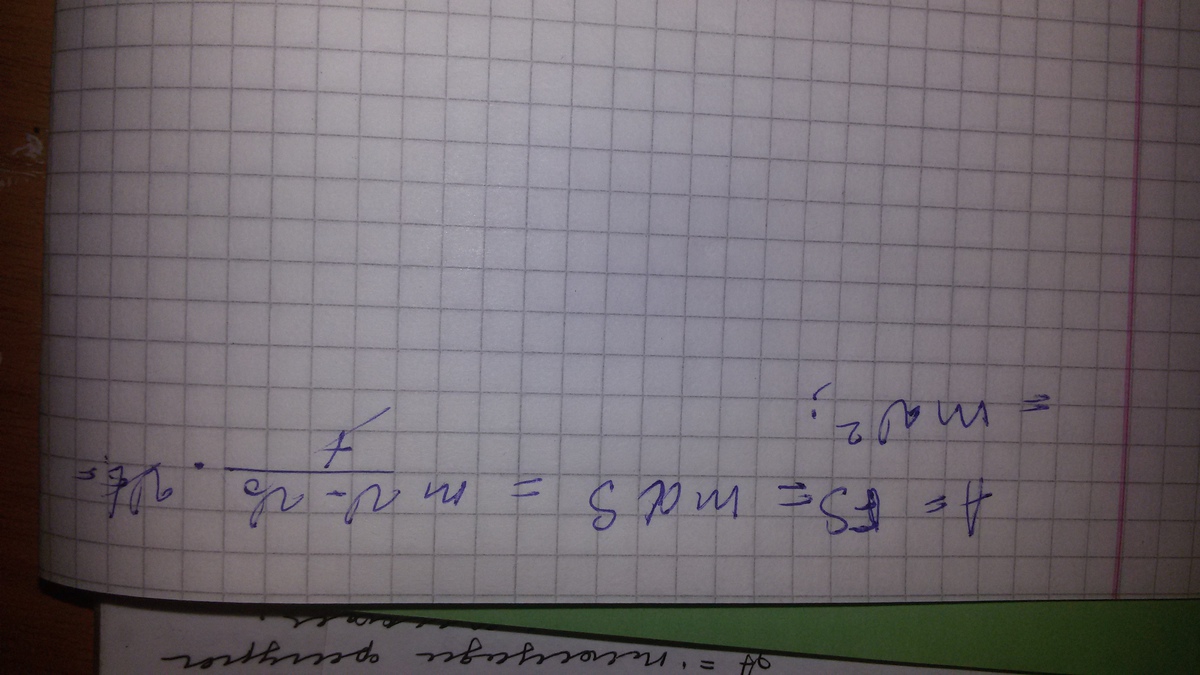 A = FS = maS = m (v - v₀)/t · vt =
= mv²;